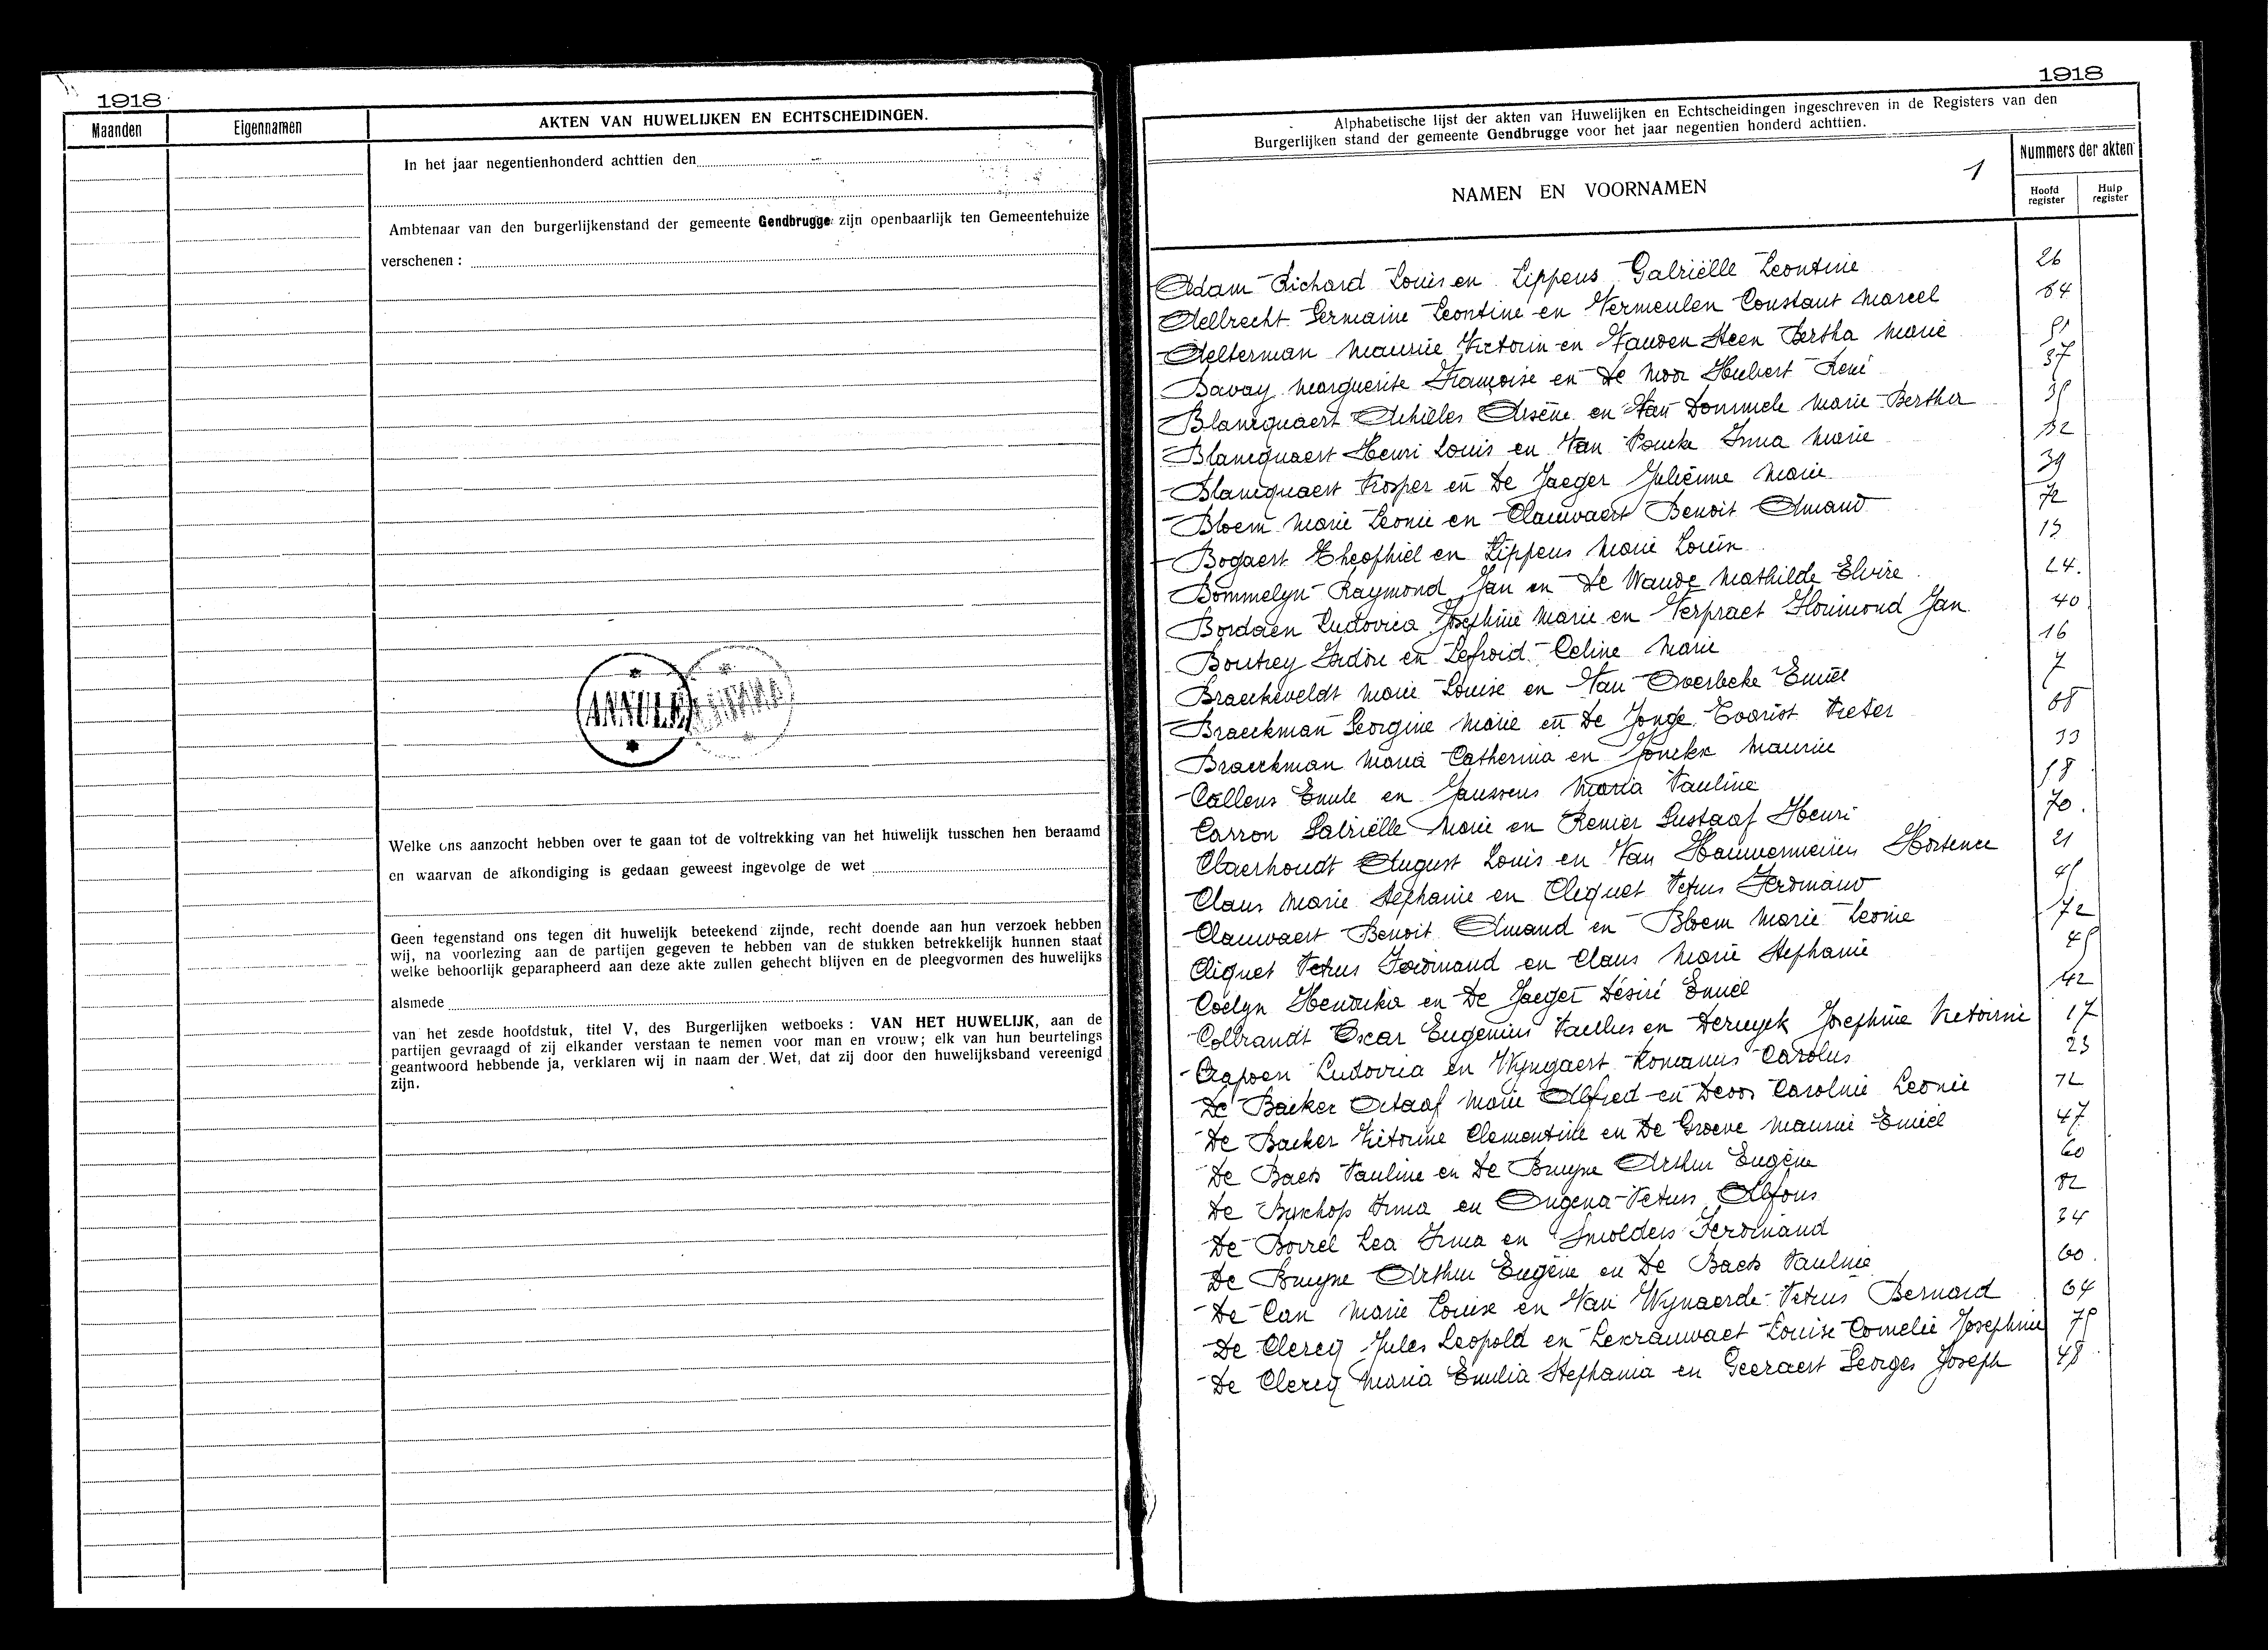 1918
Maanden
Eigennamen
AKTEN VAN HUWELIJKEN EN ECHTSCHEIDINGEN.
In het jaar negentienhonderd achttien den
Ambtenaar van den burgerlijkenstand der gemeente Gendbrugge zijn openbaarlijk ten Gemeentehuize
verschenen :
ANNULÉ
Welke ons aanzocht hebben over te gaan tot de voltrekking van het huwelijk tusschen hen beraamd
en waarvan de afkondiging is gedaan geweest ingevolge de wet
Geen tegenstand ons tegen dit huwelijk beteekend zijnde, recht doende aan hun verzoek hebben
wij, na voorlezing aan de partijen gegeven te hebben van de stukken betrekkelijk hunnen staat
welke behoorlijk geparapheerd aan deze akte zullen gehecht blijven en de pleegvormen des huwelijks
alsmede
van het zesde hoofdstuk, titel V, des Burgerlijken wetboeks : VAN HET HUWELIJK, aan de
partijen gevraagd of zij elkander verstaan te nemen voor man en vrouw; elk van hun beurtelings
geantwoord hebbende ja, verklaren wij in naam der Wet, dat zij door den huwelijksband vereenigd
zijn.
1918
Alphabetische lijst der akten van Huwelijken en Echtscheidingen ingeschreven in de Registers van den
Burgerlijken stand der gemeente Gendbrugge voor het jaar negentien honderd achttien.
NAMEN EN VOORNAMEN
1
Nummers der akten
Hoofd register
Hulp register
Adam Richard Louis en Lippens Gabriëlle Leontine 26
Aelbrecht Germaine Leontine en Vermeulen Constant Marcel 64
Aelterman Maurice Victorin en Vanden Steen Bertha Marie
Bavay Marguerite Françoise en De Moor Hubert René 37
Blancquaert Achilles Arsène en Van Dommele Marie Bertha
Blancquaert Henri Louis en Van Poucke Irma Marie
Blancquaert Prosper en De Jaeger Juliënne Marie 39
Bloem Marie Leonie en Clauwaert Benoit Amand 72
Bogaert Theophiel en Lippens Marie Louise
Bommelyn Raymond Jan en De Wande Mathilde Elvire 24.
Bordaen Ludovica Josephine Marie en Verpraet Florimond Jan 40
Boutrey Isidore en Lefroid Celine Marie 16
Braeckeveldt Marie Louise en Van Overbeke Emiel 7
Braeckman Georgine Marie en De Jonge Evarist Pieter
Braeckman Maria Catherina en Jonckx Maurice 33
Callens Emile en Janssens Maria Pauline
Carron Gabriëlle Marie en Renier Gustaaf Henri 70.
Claerhoudt August Louis en Van Hauwermeiren Hortence 21
Claus Marie Stephanie en Cliquet Petrus Ferdinand 45
Clauwaert Benoit Amand en Bloem Marie Leonie 72
Cliquet Petrus Ferdinand en Claus Marie Stephanie 45
Coelyn Hendrika en De Jaeger Désiré Emiel 42
Colbrandt Oscar Eugenius Paulus en Deruyck Josephine Victorine 17
Crapoen Ludovica en Wyngaert Romanus Carolus 23
De Backer Octaaf Marie Alfred en Devos Caroline Leonie
De Backer Victorine Clementine en De Groeve Maurice Emiel 47
De Baets Pauline en De Bruyne Arthur Eugène 60
De Bysschop Irma en Ongena Petrus Alfons
De Borrel Lea Irma en Smolders Ferdinand 34
De Bruyne Arthur Eugène en De Baets Pauline 60.
De Can Marie Louise en Van Wynaerde Petrus Bernard 64
De Clercq Jules Leopold en Lekrauwaet Louise Cornelie Josephine 75
De Clercq Maria Emilia Stephania en Geeraert Georges Joseph 48